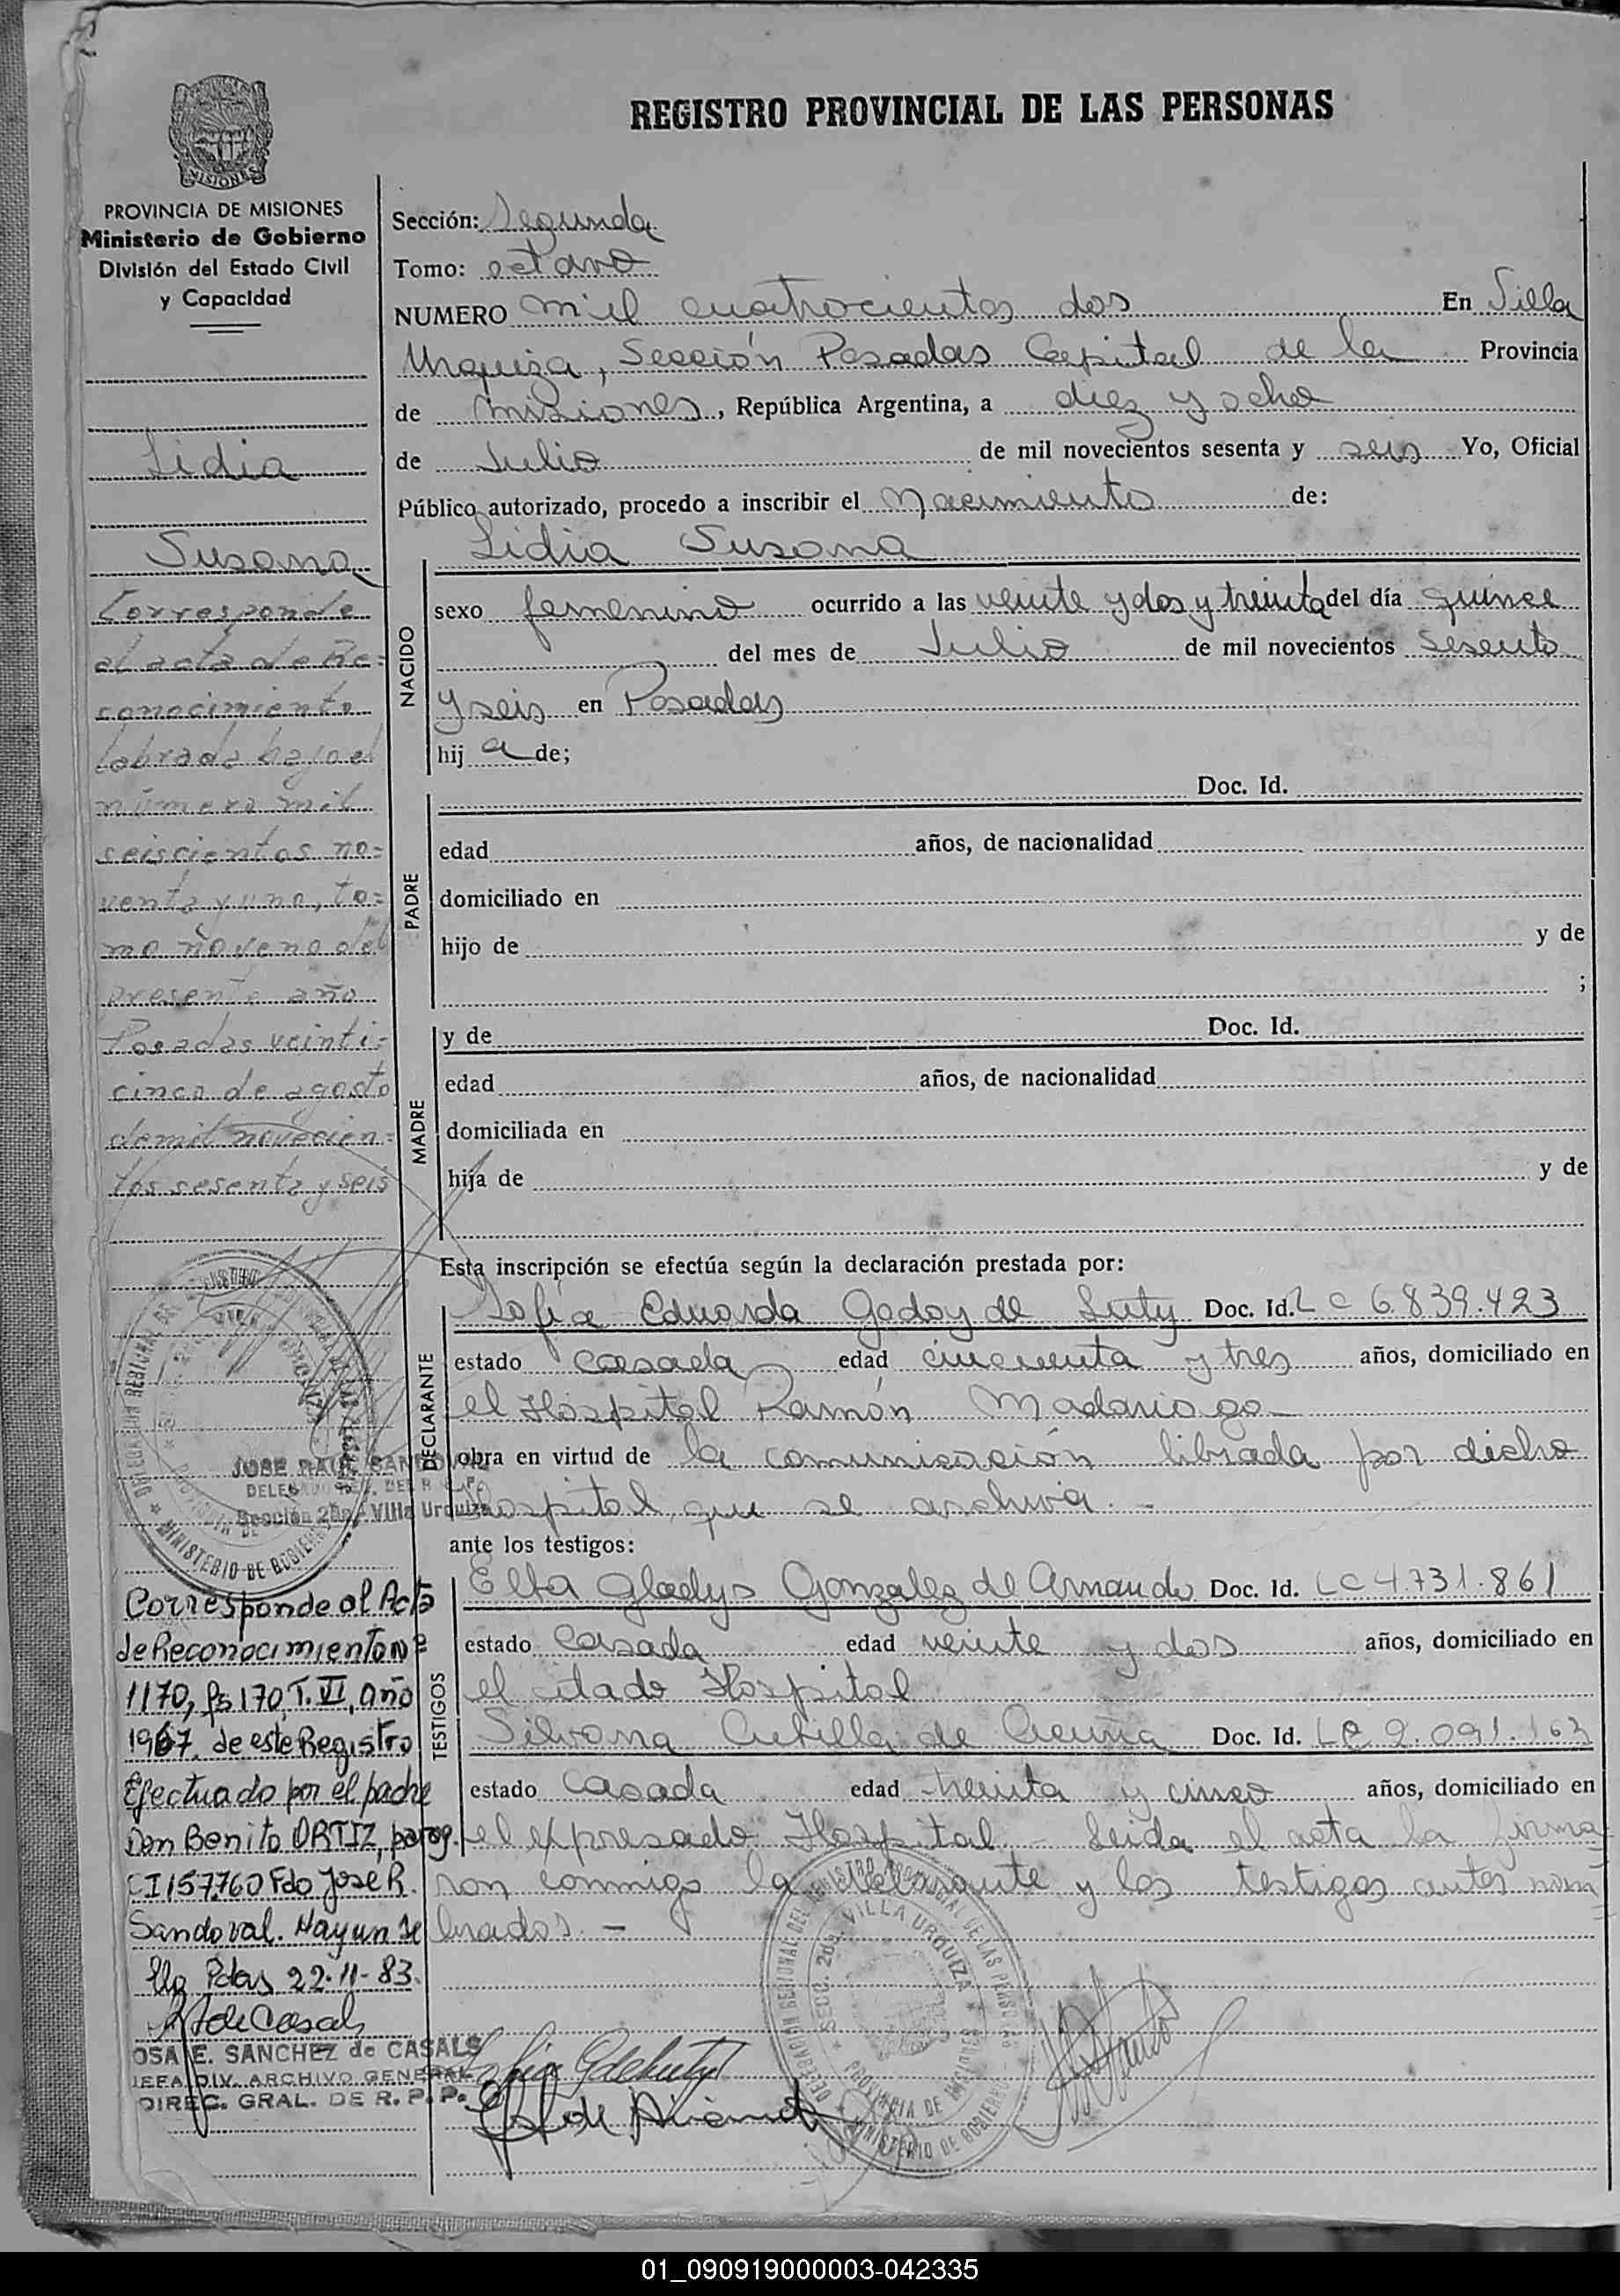 REGISTRO PROVINCIAL DE LAS PERSONAS
MISIONES
PROVINCIA DE MISIONES
Ministerio de Gobierno
División del Estado Civil
y Capacidad
Lidia
Susana
Corresponde
al acta de Re=
conocimiento
labrada bajo el
número mil
seiscientos no=
venta y uno, to=
mo noveno del
presente año
Posadas veinti=
cinco de agosto
de mil novecien=
tos sesenta y seis
JOSE RAUL SANDOVAL
Sección 2da. Villa Urquiza
Corresponde al Acta
de Reconocimiento Nº
1170, fs 170, T. VI, año
1967, de este Registro
Efectuado por el padre
Don Benito ORTIZ, parag.
CI 157.760 Fdo Jose R.
Sandoval. Hay un se
llo Pdas 22-11-83.
OSA E. SANCHEZ de CASALS
JEFA DIV. ARCHIVO GENERAL
DIREC. GRAL. DE R. P. P.
Sección: Segunda
Tomo: octavo
NUMERO mil cuatrocientos dos En Villa
Urquiza, Sección Posadas Capital de la Provincia
de Misiones, República Argentina, a diez y ocho
de Julio de mil novecientos sesenta y seis Yo, Oficial
Público autorizado, procedo a inscribir el Nacimiento de:
Lidia Susana
NACIDO
sexo femenino ocurrido a las veinte y dos y treinta del día quince
del mes de Julio de mil novecientos sesenta
y seis en Posadas
hij a de;
PADRE
Doc. Id.
edad años, de nacionalidad
domiciliado en
hijo de y de
;
MADRE
y de Doc. Id.
edad años, de nacionalidad
domiciliada en
hija de y de
Esta inscripción se efectúa según la declaración prestada por:
DECLARANTE
Sofia Eduarda Godoy de Luty Doc. Id. L C 6.839.423
estado casada edad cincuenta y tres años, domiciliado en
el Hospital Ramón Madariaga
obra en virtud de la comunicación librada por dicho
Hospital que se archiva. -
ante los testigos:
TESTIGOS
Elba Gladys Gonzalez de Armando Doc. Id. LC 4.731.861
estado Casada edad veinte y dos años, domiciliado en
el citado Hospital
Silvana de Acuña Doc. Id. LC 2.091.163
estado Casada edad treinta y cinco años, domiciliado en
el expresado Hospital - Leida el acta la firma
ron conmigo la declarante y los testigos antes nom
brados. -
DELEGACION REGIONAL DEL REGISTRO PROVINCIAL DE LAS PERSONAS
SECC. 2da. VILLA URQUIZA
PROVINCIA DE MISIONES
MINISTERIO DE GOBIERNO
01_090919000003-042335